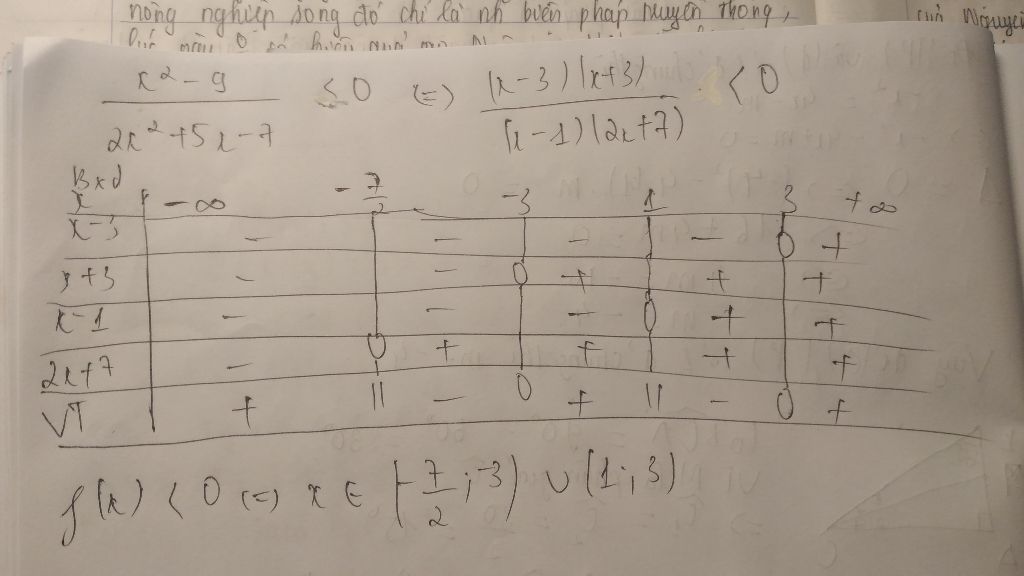 nông nghiệp song đó chỉ là biến pháp truyền thong,
x² - 9 / 2x² + 5x - 7 < 0 (=) (x - 3)(x + 3) / (x - 1)(2x + 7) < 0
Bxd
x -∞ -7/2 -3 1 3 +∞
x - 3 - - - - 0 +
x + 3 - - 0 + + +
x - 1 - - - 0 + +
2x + 7 - 0 + + + +
VT + || - 0 + || - 0 +
f(x) < 0 (=) x ∈ (-7/2 ; -3) ∪ (1 ; 3)